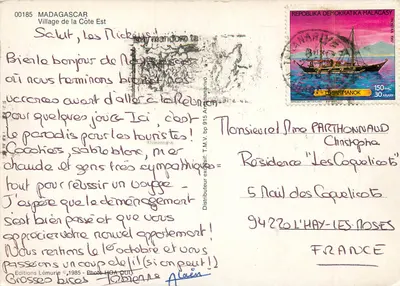 00185 MADAGASCAR
Village de la Côte Est
Salut, les
Bien le bonjour de Madagascar
où nous terminons bientôt nos
vacances avant d'aller à la Réunion
pour quelques jours. Ici, c'est
le paradis pour les touristes!
Cocotiers, sable blanc, mer
chaude et gens très sympathiques=
tout pour réussir un voyage.
J'espère que le déménagement
s'est bien passé et que vous
appréciez votre nouvel appartement!
Nous rentrons le 1er octobre et vous
passerons un coup de fil (si on peut!)
Grosses bises Fabienne Alain
Editions Lémuria © 1985 - Photo HOA QUI
Distributeur exclusif: T.M.V. bp 915 Antananarivo
REPOBLIKA DEMOKRATIKA MALAGASY
150 FMG
30 ARIARY
Monsieur et Mme PARTHONNAUD
Christophe
Résidence "Les Coquelicots"
5 Mail des Coquelicots
94240 L'HAY-LES-ROSES
FRANCE